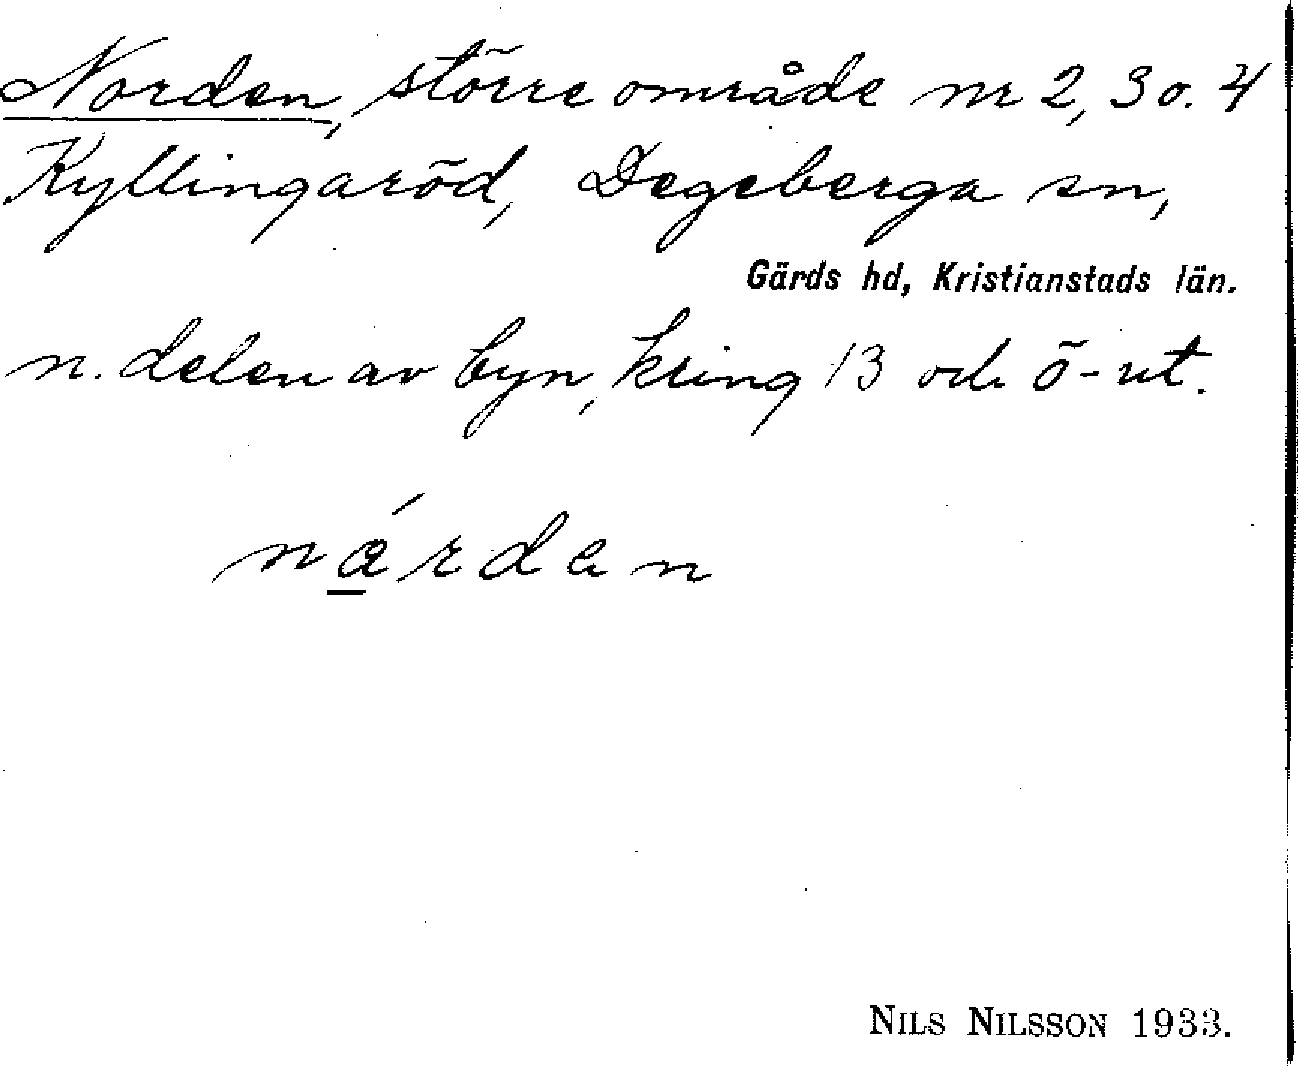 Norden, större område nr 2, 3 o. 4
Kyllingaröd, Degeberga sn,
Gärds hd, Kristianstads län.
n. delen av byn, kring 13 och ö-ut.
NILS NILSSON 1933.